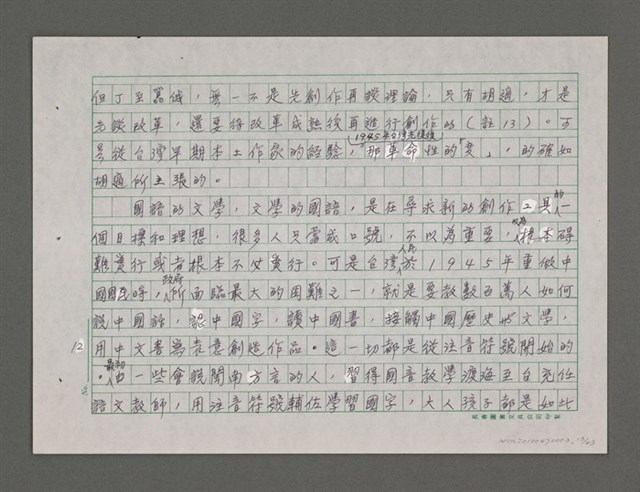 但丁至喬叟，無一不是先創作再談理論，只有胡適，才是
先談改革，還要將改革成熟後再進行創作的（註13）。可
1945年台灣光復後
是從台灣早期本土作家的經驗，「那革命性的變」，的確如
胡適所主張的。
國語的文學，文學的國語，是在尋求新的創作工具的一
個目標和理想，很多人只當成口號，不以為重要，根本礙
難實行或者根本不必實行。可是台灣人民於1945年重做中
國國民時，政府所面臨最大的困難之一，就是要教數百萬人如何
說中國話，認中國字，讀中國書，接觸中國歷史與文學，
用中文書寫表意創造作品。這一切都是從注音符號開始的
。最初由一些會說閩南方言的人，習得國音教學渡海至台充任
語文教師，用注音符號輔佐學習國字，大人孩子都是如此
12
No.